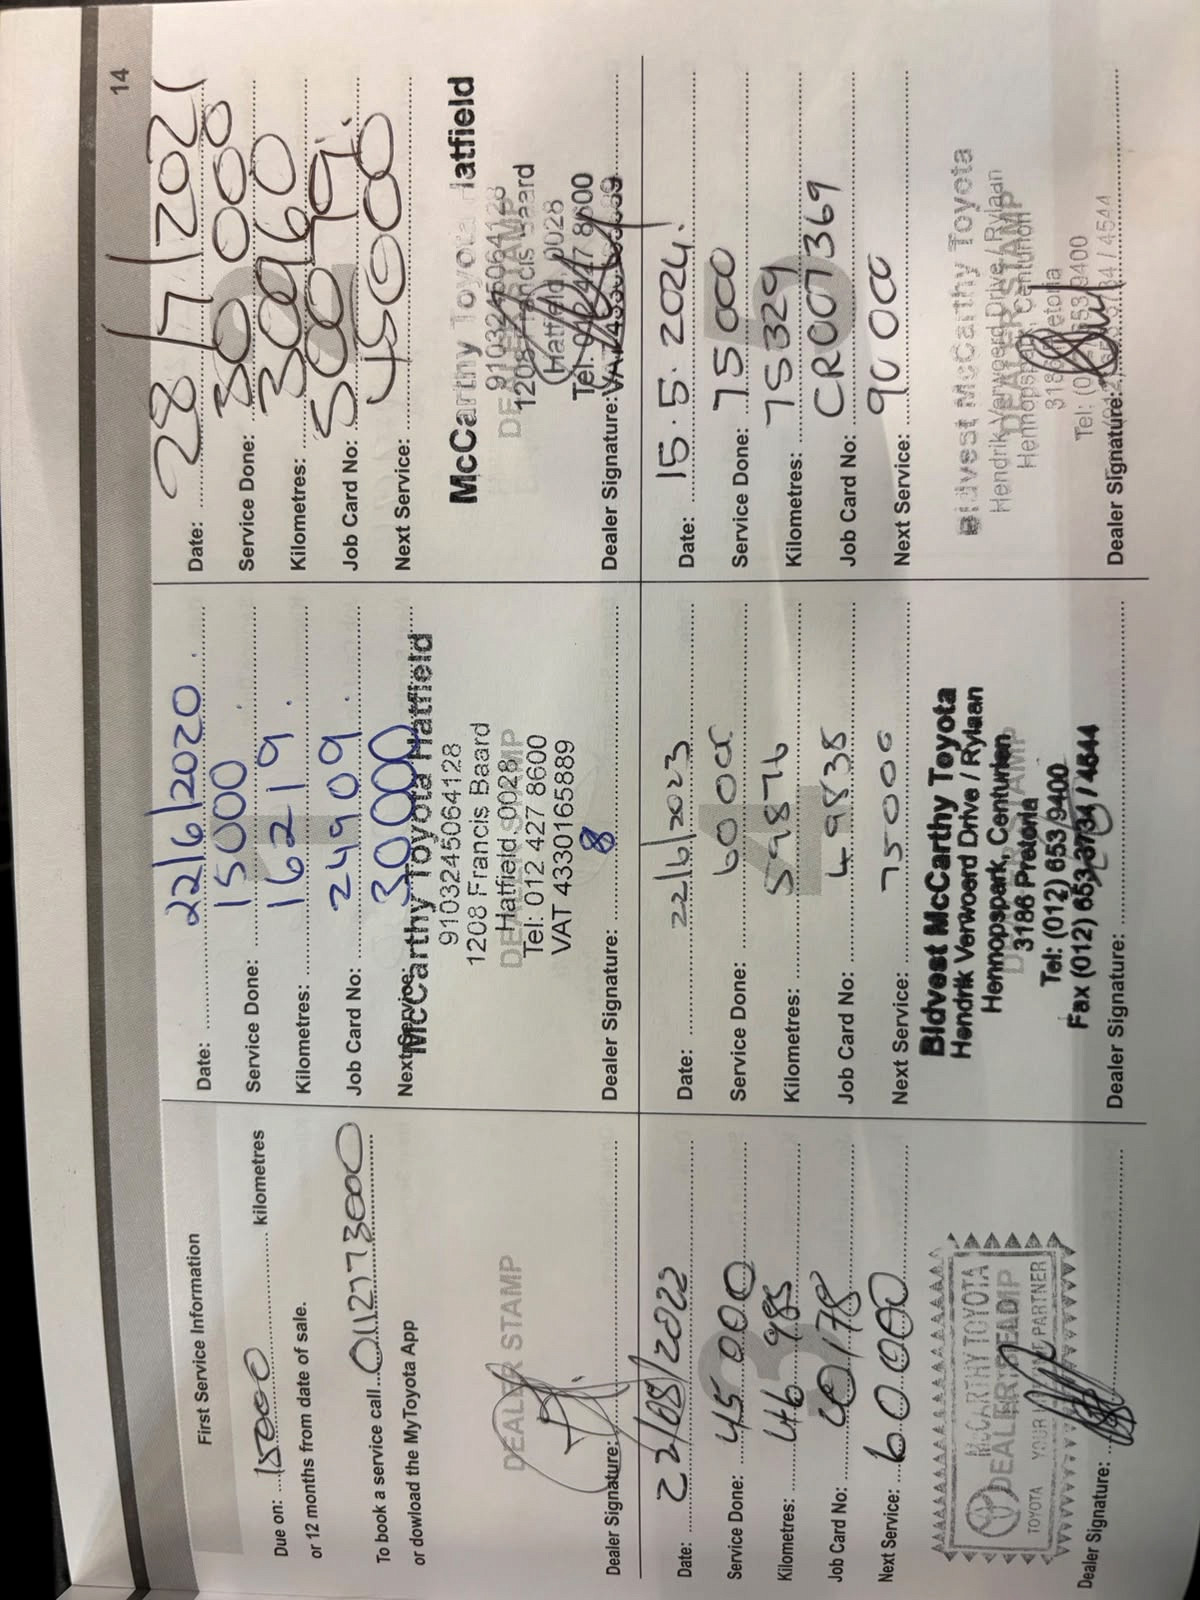 14
First Service Information
Due on: 15000 kilometres
or 12 months from date of sale.
To book a service call 0112773000
or dowload the MyToyota App
DEALER STAMP
Dealer Signature:
Date: 22/6/2020
Service Done: 15000
Kilometres: 16219
Job Card No: 24909
Next Service: 30000
McCarthy Toyota Hatfield
9103245064128
1208 Francis Baard
Hatfield 0028
DEALER STAMP
Tel: 012 427 8600
VAT 4330165889
Dealer Signature:
Date: 28/7/2021
Service Done: 30 000
Kilometres: 30960
Job Card No: 50079
Next Service: 45000
McCarthy Toyota Hatfield
9103245064128
DEALER STAMP
1208 Francis Baard
Hatfield 0028
Tel: 012 427 8600
Dealer Signature: VAT 4330165889
Date: 22/08/2022
Service Done: 45 000
Kilometres: 46 985
Job Card No: 20178
Next Service: 60 000
McCARTHY TOYOTA
DEALER STAMP
TOYOTA YOUR PARTNER
Dealer Signature:
Date: 22/6/2023
Service Done: 60000
Kilometres: 59876
Job Card No: 49838
Next Service: 75000
4
Bidvest McCarthy Toyota
Hendrik Verwoerd Drive / Rylaan
Hennopspark, Centurion
DEALER STAMP
3186 Pretoria
Tel: (012) 653 9400
Fax (012) 653 3734 / 4544
Dealer Signature:
Date: 15.5.2024
Service Done: 75 000
Kilometres: 75329
Job Card No: CR007369
Next Service: 90 000
Bidvest McCarthy Toyota
Hendrik Verwoerd Drive / Rylaan
DEALER STAMP
Hennopspark, Centurion
3186 Pretoria
Tel: (012) 653 9400
3734 / 4544
Dealer Signature: